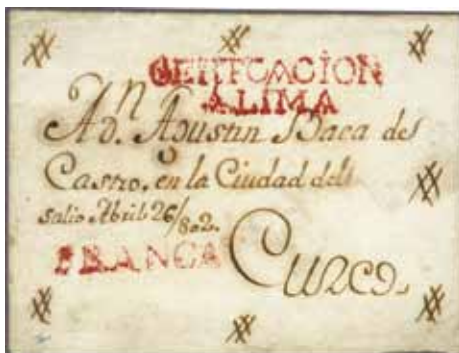 CERTIFCACION
ALIMA
A Dn. Agustin Baca del
Castro. en la Ciudad del
salio Abril 26/802.
FRANCA
Cuzco.